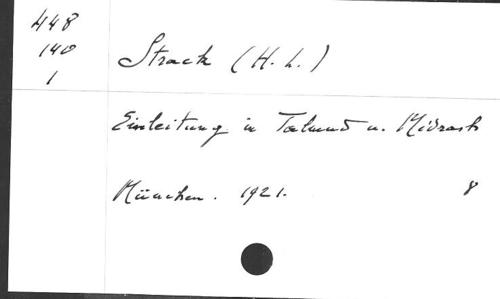 448
140
1
Strack (H. L.)
Einleitung in Talmud u. Midrasch
München. 1921. 8